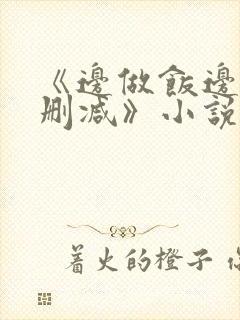 《邊做飯邊
刪減》小說
着火的橙子